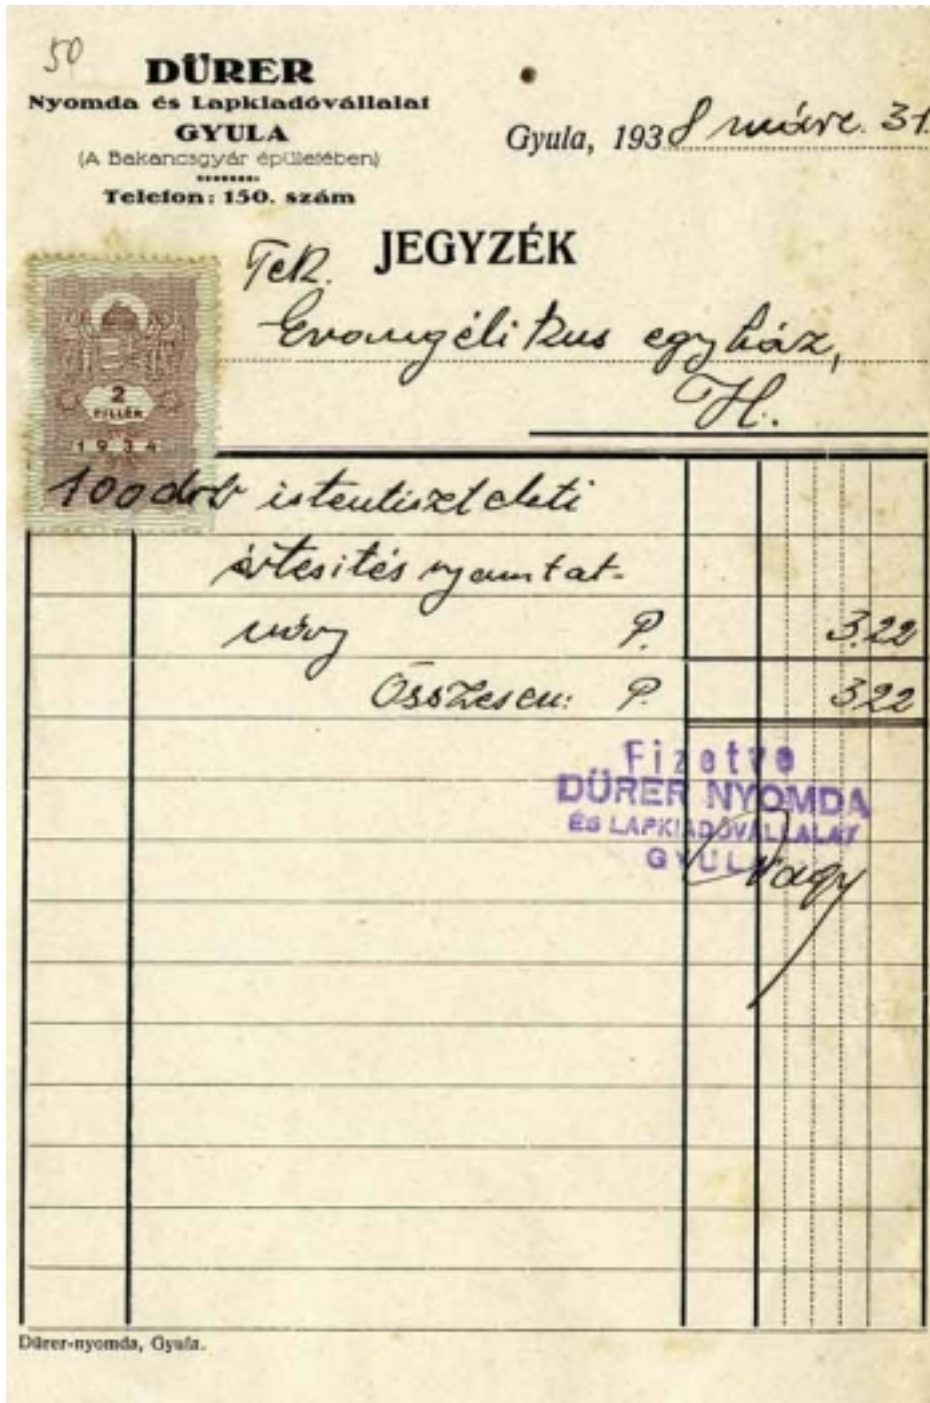 50
DÜRER
Nyomda és Lapkiadóvállalat
GYULA
(A Bakancsgyár épületében)
Telefon: 150. szám
Gyula, 1938 márc. 31.
JEGYZÉK
Tek.
Evangélikus egyház,
H.
2
FILLÉR
1934
100 drb istentiszteleti
értesítés nyomtat-
vány P. 3.22
Összesen: P. 322
Fizetve
DÜRER NYOMDA
ÉS LAPKIADÓVÁLLALAT
GYULA
Nagy
Dürer-nyomda, Gyula.